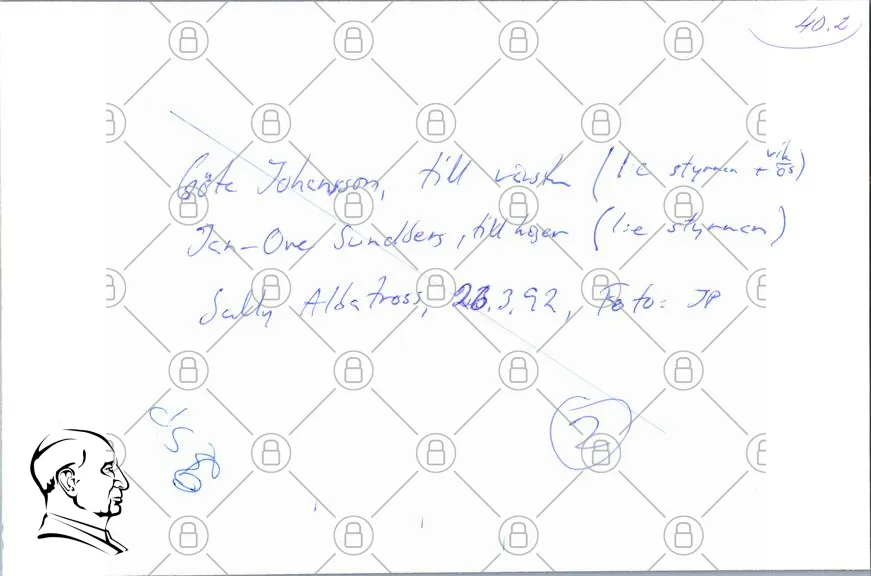 40.2
Göte Johansson, till vänster (1:e styrman + vik ös)
Jan-Ove Sundberg, till höger (1:e styrman)
Sally Albatross, 26.3.92, Foto: JP
2